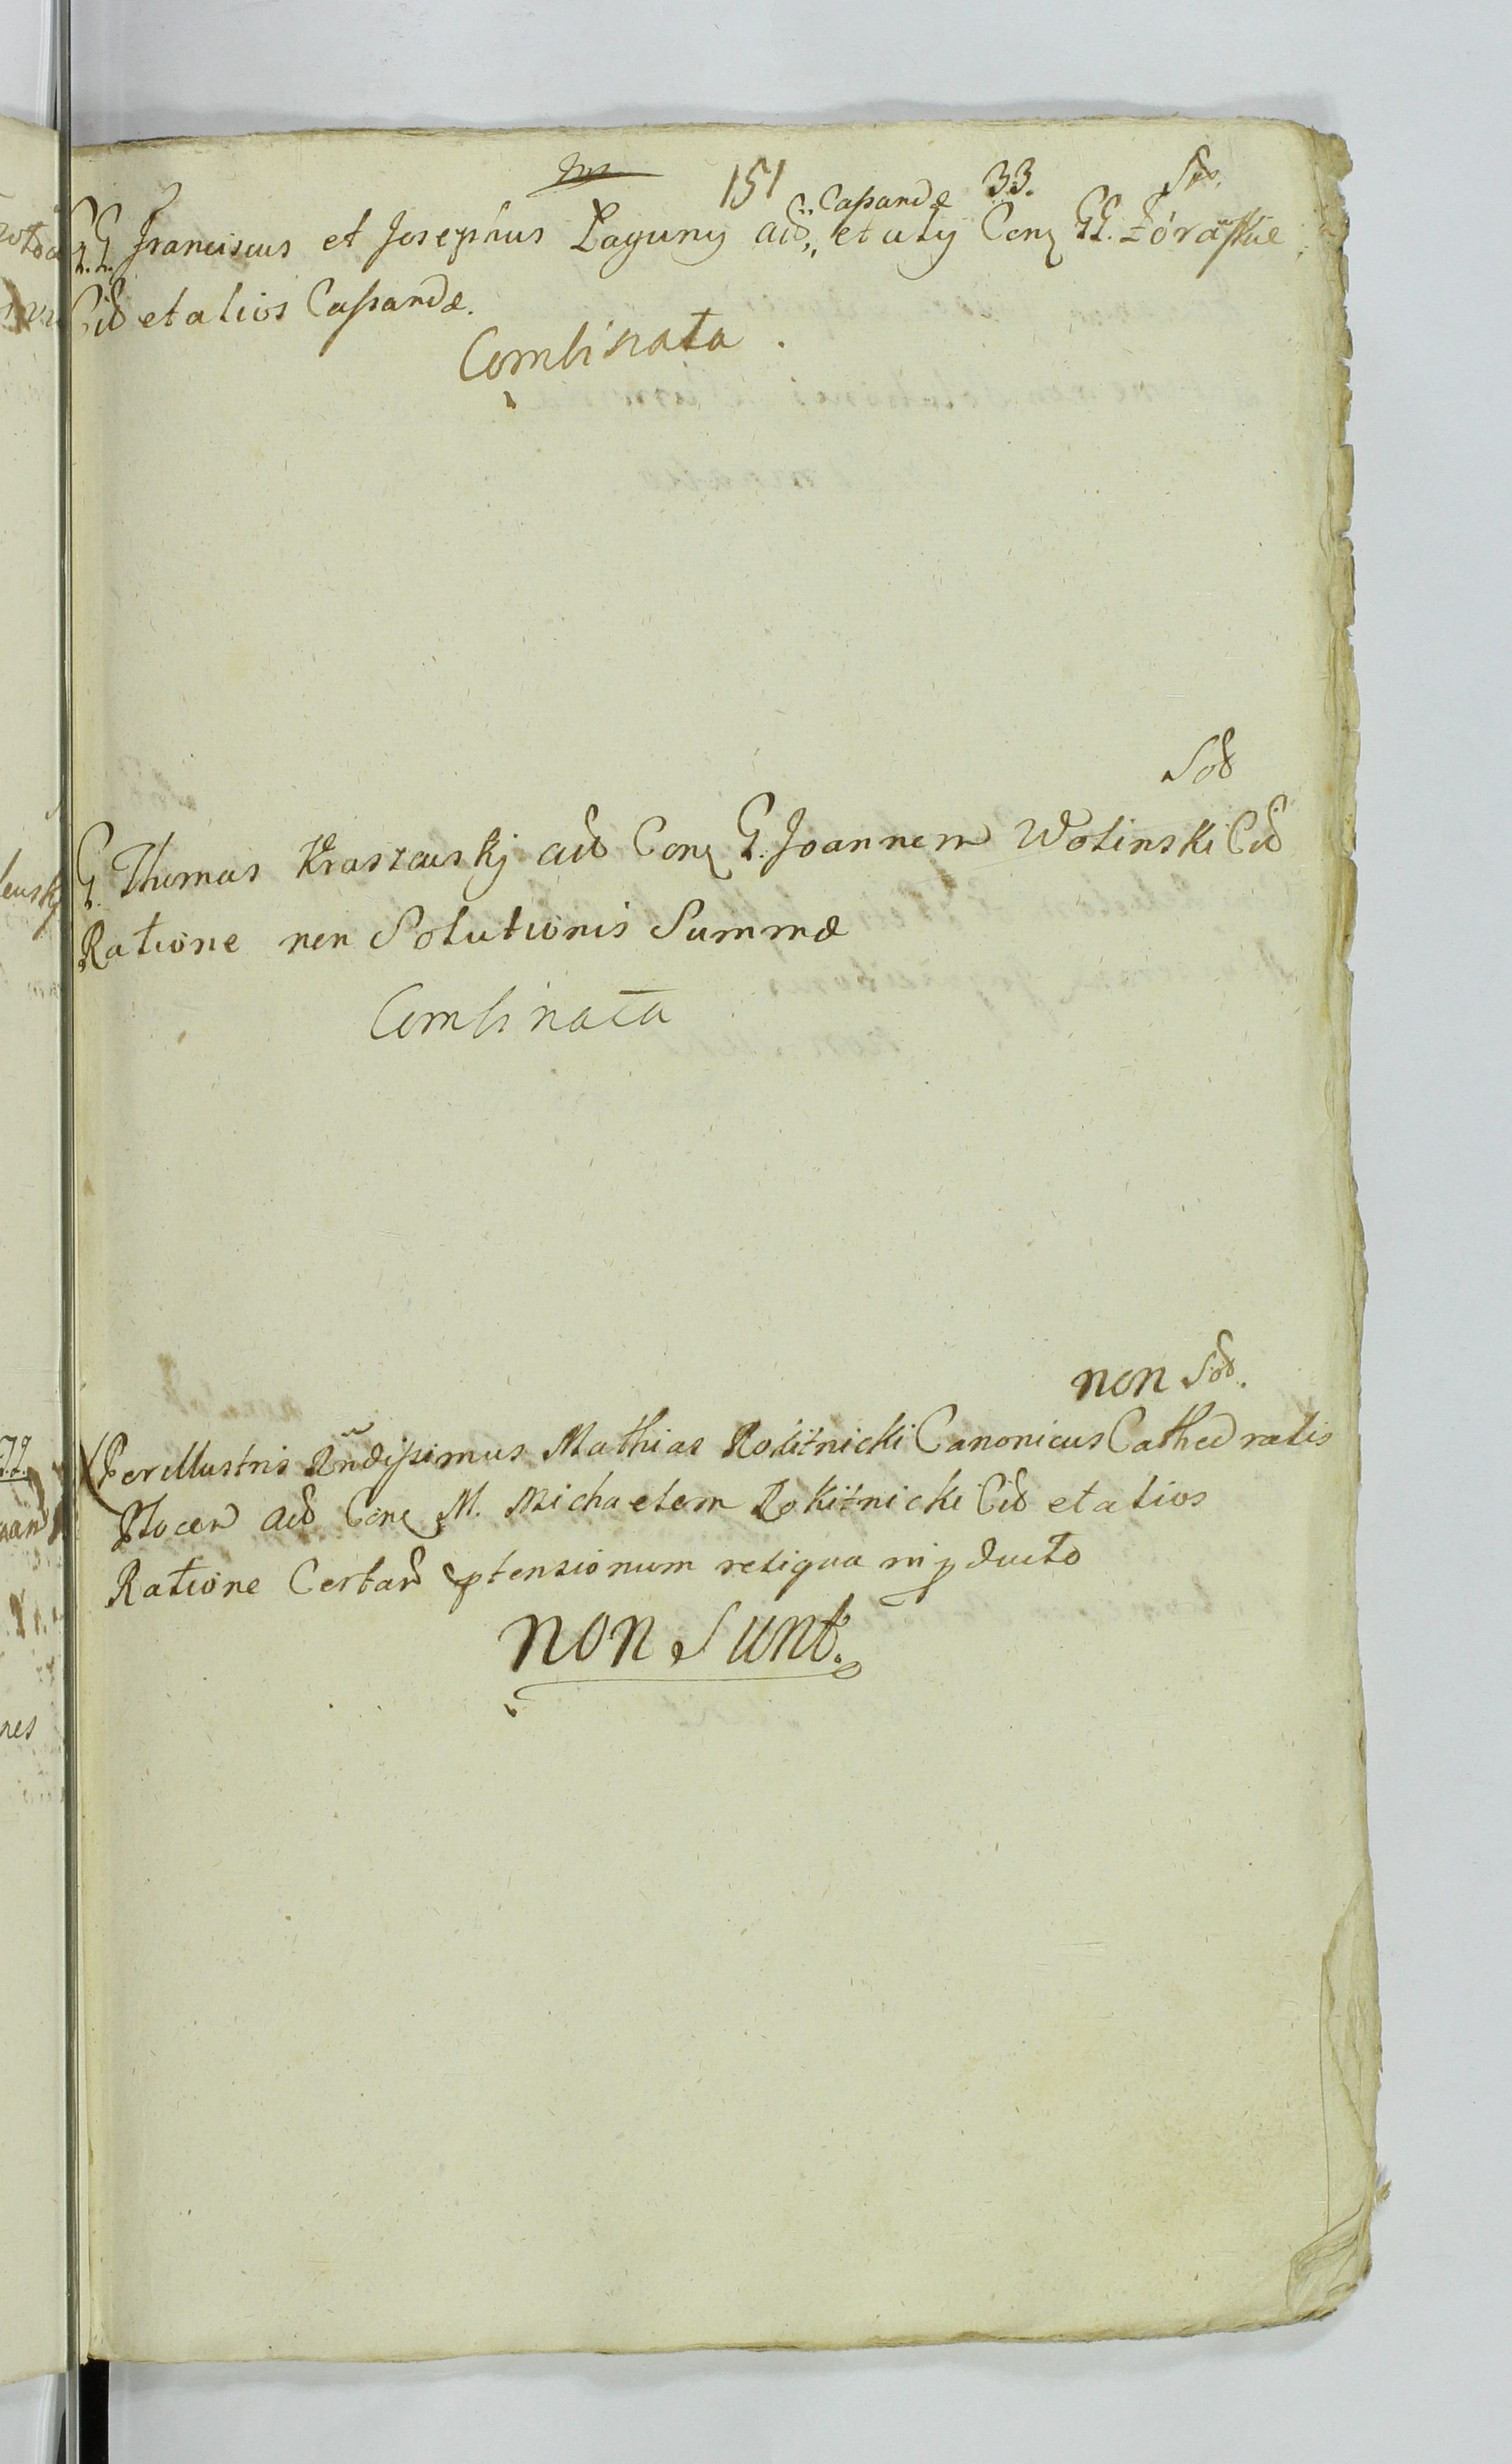 151 33. Sol.
GG. Franciscus et Josephus Łaguny act. Cassandæ et alij Con. GG. Żórawskie
Cit et alios Cassandæ.
Combinata.
Sol
G. Thomas Kraszewskj act Con. G. Joannem Wolinski Cit
Ratione non Solutionis Summæ
Combinata
non Sol.
Perillustris Rndissimus Mathias Rokitnicki Canonicus Cathedralis
Plocen act Con. M. Michaelem Rokitnicki Cit et alios
Ratione Certar ptensionum reliqua in pducto
non Sunt.